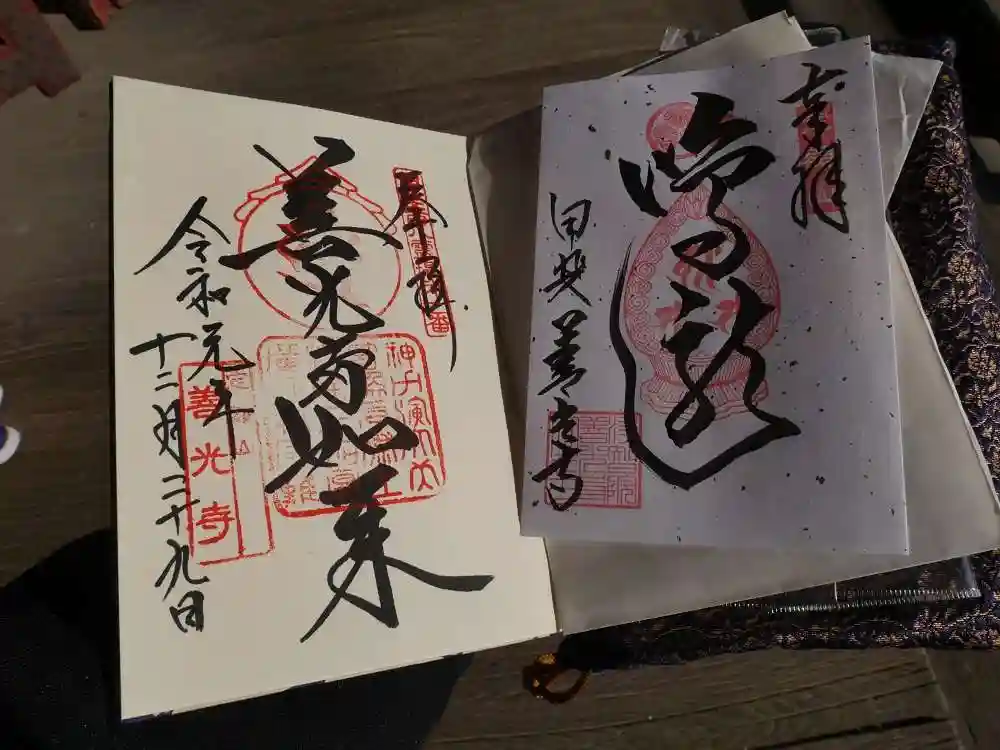 奉拝
善光寺如来
令和元年
十二月二十九日
善光寺
奉拝
鳴龍
甲斐善光寺